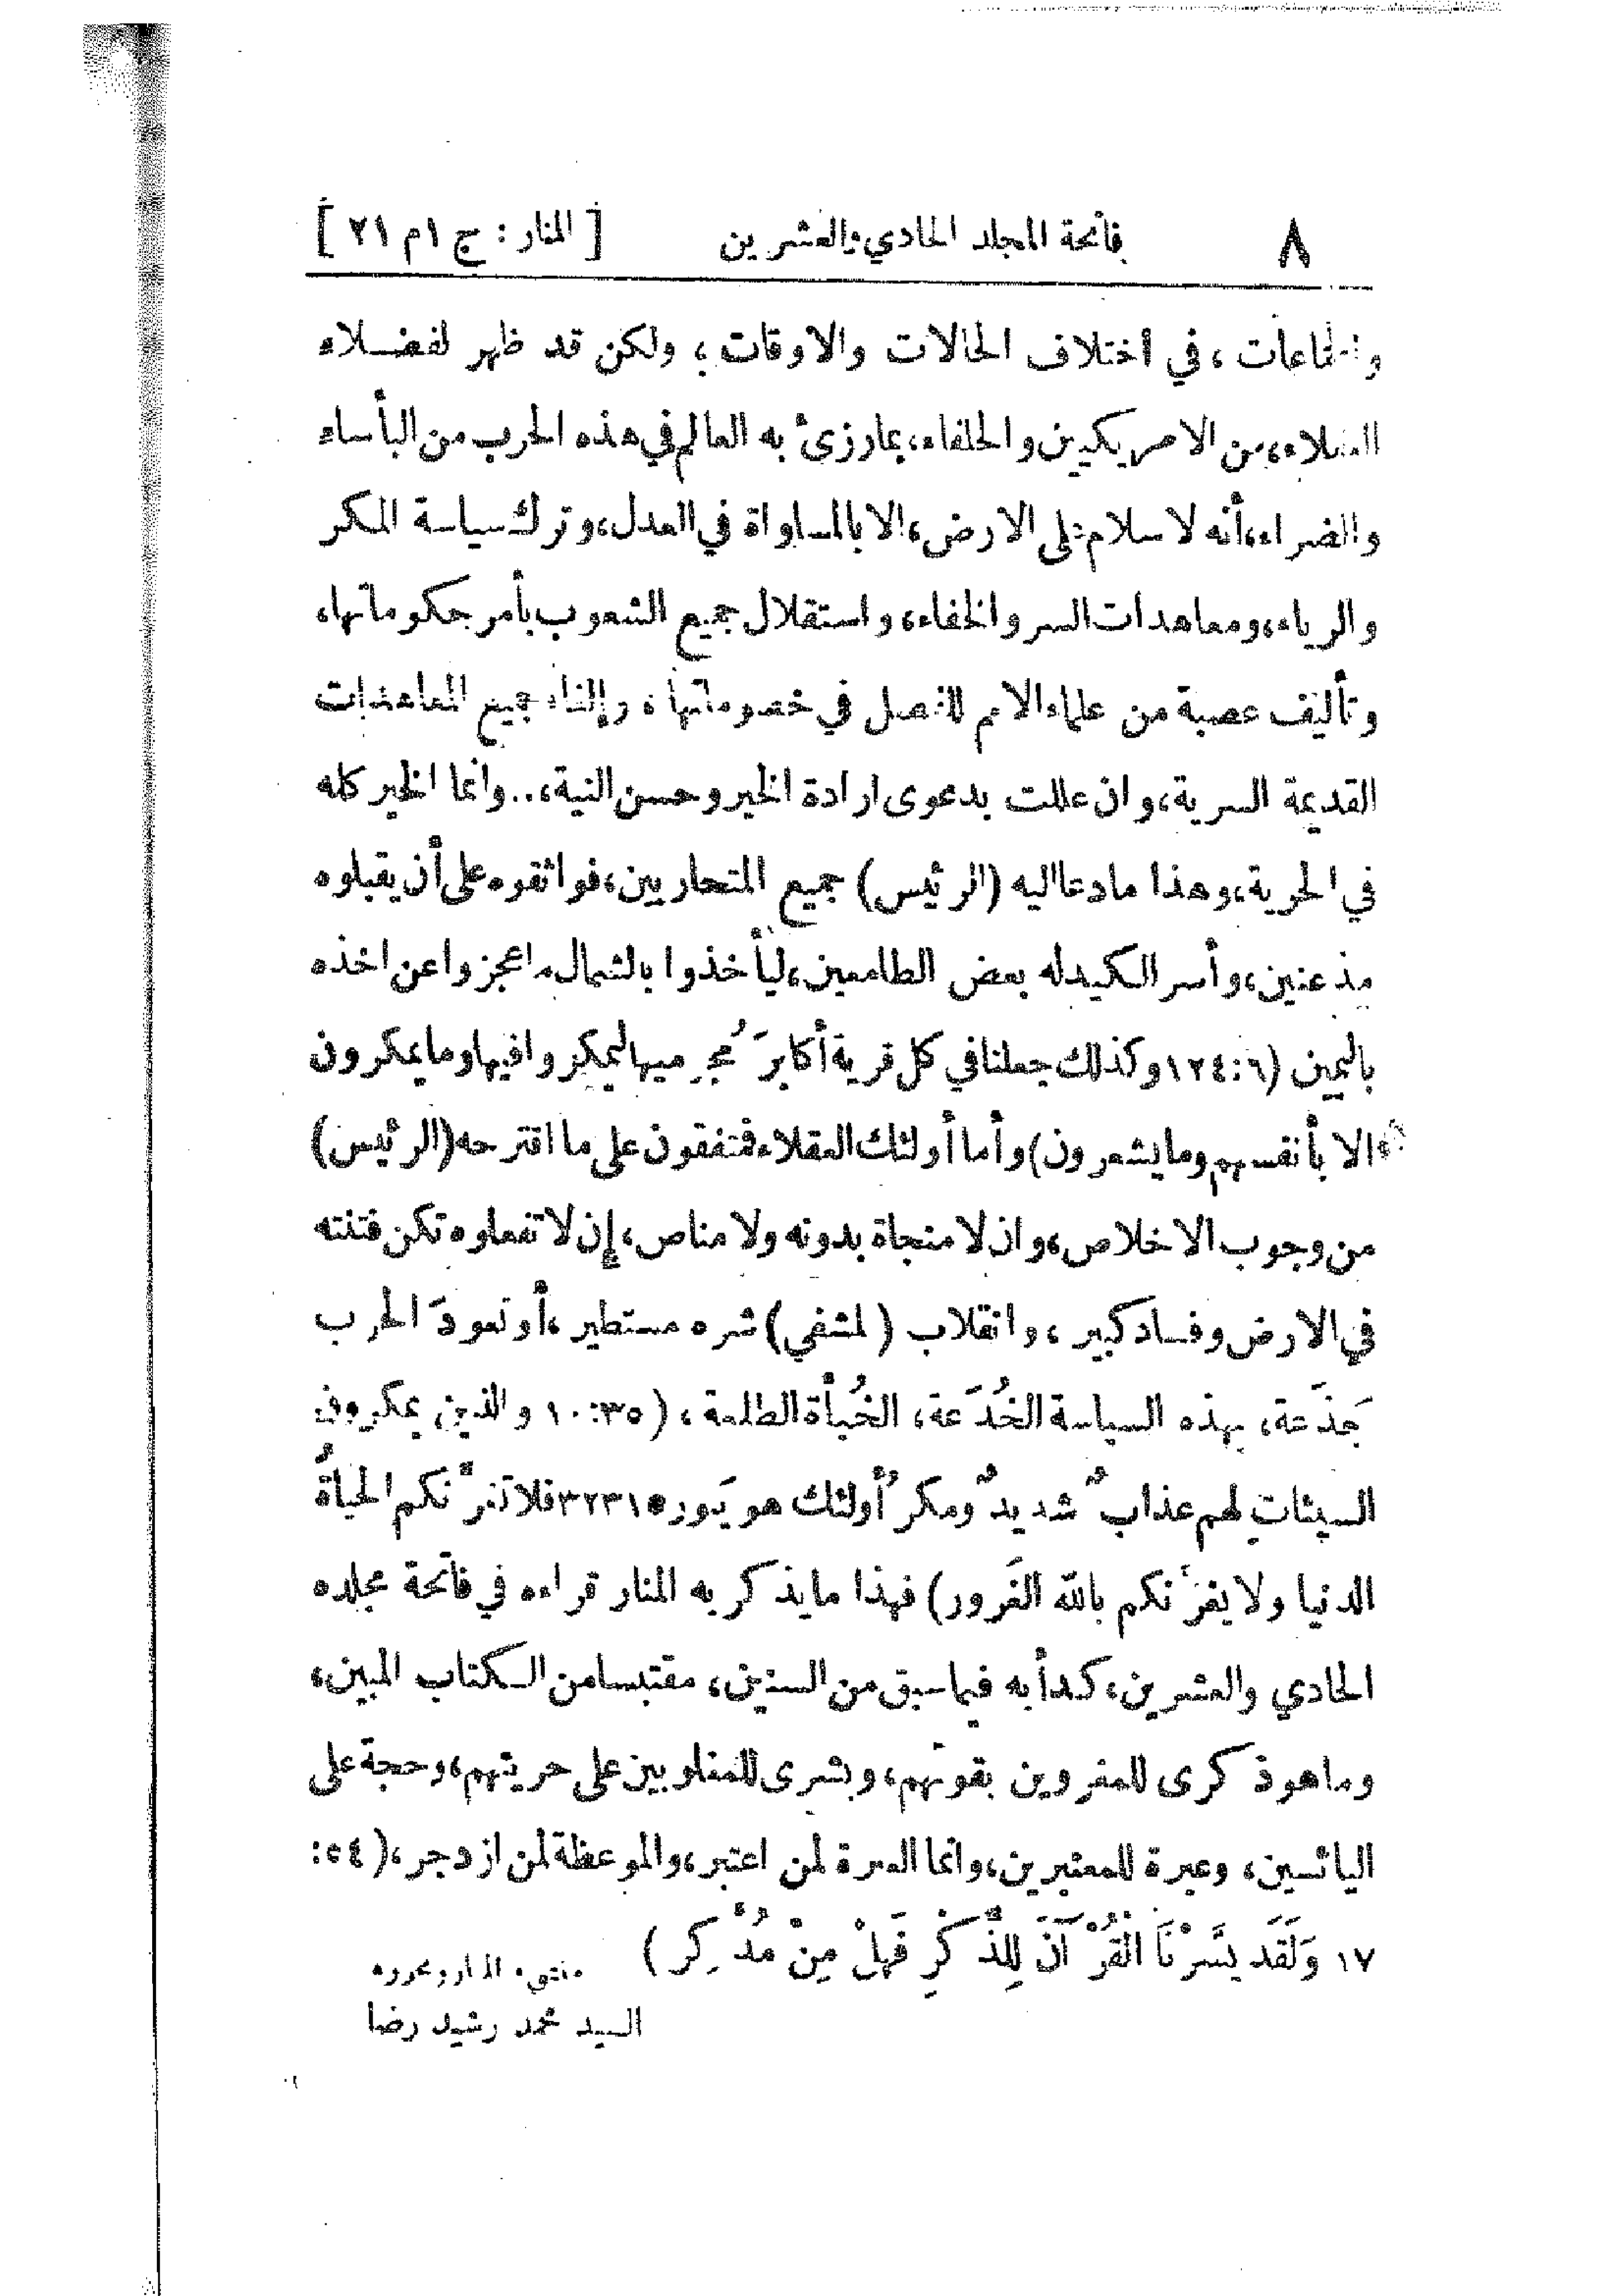 ٨ فاتحة المجلد الحادي والعشرين [ المنار : ج ١ م ٢١ ]
والجماعات ، في اختلاف الحالات والاوقات ، ولكن قد ظهر لفضلاء
العقلاء، من الامريكيين والحلفاء، بما رزئ به العالم في هذه الحرب من البأساء
والضراء، أنه لا سلام على الارض، الا بالمساواة في العدل، وترك سياسة المكر
والرياء، ومعاهدات السر والخفاء، واستقلال جميع الشعوب بأمر حكوماتها،
وتأليف عصبة من علماء الامم للفصل في خصوماتها ، وإلغاء جميع المعاهدات
القديمة السرية، وان عللت بدعوى ارادة الخير وحسن النية، .. وانما الخير كله
في الحرية، وهذا ما دعا اليه (الرئيس) جميع المتحاربين، فواثقوه على أن يقبلوه
مذعنين، وأسر الكيد له بعض الطامعين، ليأخذوا بالشمال ما عجزوا عن اخذه
باليمين (١٢٤:٦ وكذلك جعلنا في كل قرية أكابرَ مُجرميها ليمكروا فيها وما يمكرون
الا بأنفسهم وما يشعرون) وأما أولئك العقلاء فمتفقون على ما اقترحه (الرئيس)
من وجوب الاخلاص، وان لا منجاة بدونه ولا مناص، إن لا تفعلوه تكن فتنته
في الارض وفساد كبير ، وانقلاب (لمشفي) شره مستطير ، أو تعودَ الحرب
جَذَعة، بهذه السياسة الخُدَعة، الخُبأة الطلعة ، (١٠:٣٥ والذين يمكرون
السيئات لهم عذابٌ شديدٌ ومكرُ أُولئك هو يَبور ٣٢:٣١ فلا تغرَّنكم الحياةُ
الدنيا ولا يغرَّنكم بالله الغَرور) فهذا ما يذكر به المنار قراءه في فاتحة مجلده
الحادي والعشرين، كدأبه فيما سبق من السنين، مقتبسا من الكتاب المبين،
وما هو ذكرى للمغروين بقوتهم، وبشرى للمغلوبين على حريتهم، وحجة على
اليائسين، وعبرة للمعتبرين، وانما العبرة لمن اعتبر، والموعظة لمن ازدجر، (٥٤:
١٧ وَلَقَد يَسَّرْنَا الْقُرْآنَ لِلذِّكْرِ فَهَلْ مِنْ مُدَّكِر ) منشىء المنار ومحرره
السيد محمد رشيد رضا